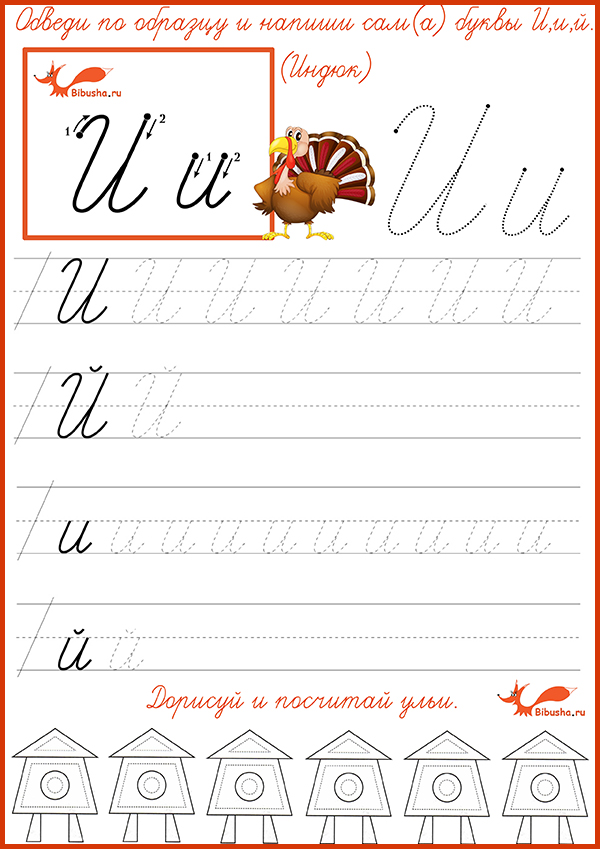 Обведи по образцу и напиши сам(а) буквы И,и,й.
(Индюк)
Bibusha.ru
1 2
1 2
И и
И и
И И И И И И И
Й Й
и и и и и и и и и и
й й
Дорисуй и посчитай ульи.
Bibusha.ru